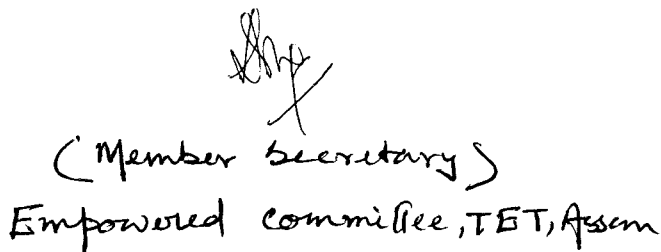 (Member Secretary)
Empowered committee, TET, Assam